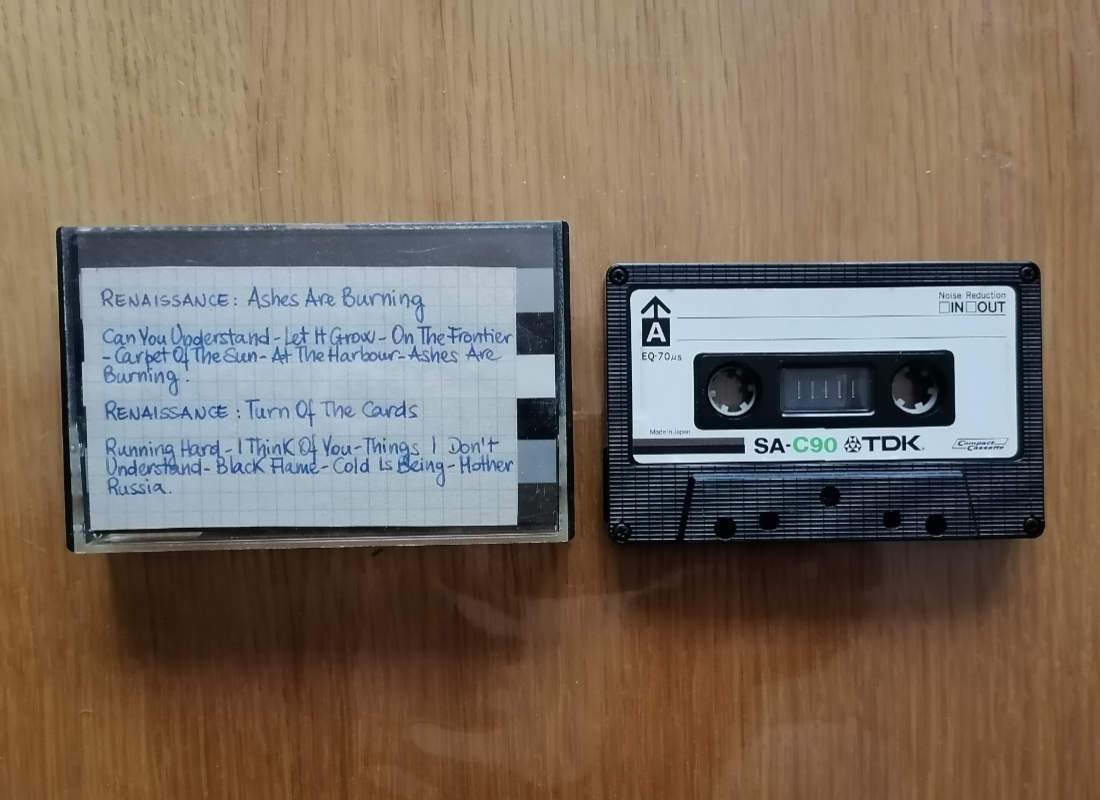 RENAISSANCE: Ashes Are Burning
Can You Understand - Let It Grow - On The Frontier
- Carpet Of The Sun - At The Harbour - Ashes Are
Burning.
RENAISSANCE: Turn Of The Cards
Running Hard - I Think Of You - Things I Don't
Understand - Black Flame - Cold Is Being - Mother
Russia.
Noise Reduction
□IN □OUT
A
EQ-70μs
Made in Japan
SA-C90 TDK.
Compact
Cassette